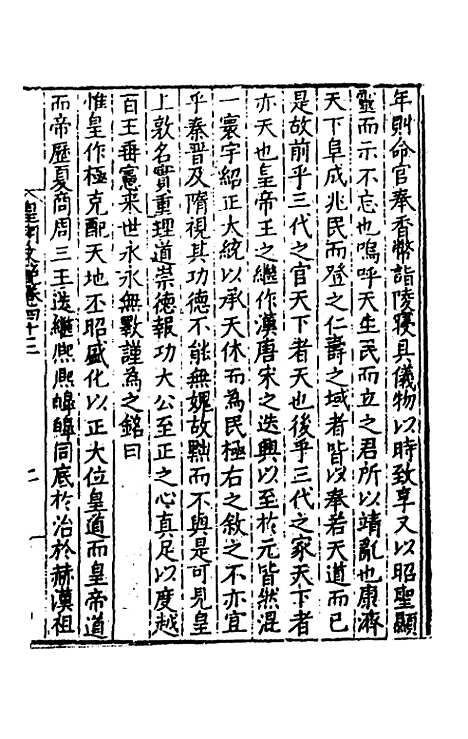 年則命官奉香幣詣陵寢具儀物以時致享又以昭聖顯
靈而示不忘也嗚呼天生民而立之君所以靖亂也康濟
天下阜成兆民而登之仁壽之域者皆以奉若天道而已
是故前乎三代之官天下者天也後乎三代之家天下者
亦天也皇帝王之繼作漢唐宋之迭興以至於元皆然混
一寰宇紹正大統以承天休而為民極右之敘之不亦宜
乎秦晉及隋視其功德不能無媿故黜而不與是可見皇
上敦名實重理道崇德報功大公至正之心真足以度越
百王垂憲來世永永無斁謹為之銘曰
惟皇作極克配天地丕昭盛化以正大位皇道而皇帝道
而帝歷夏商周三王迭繼熈熈皥皥同底於治於赫漢祖
皇明文衡卷四十三
二